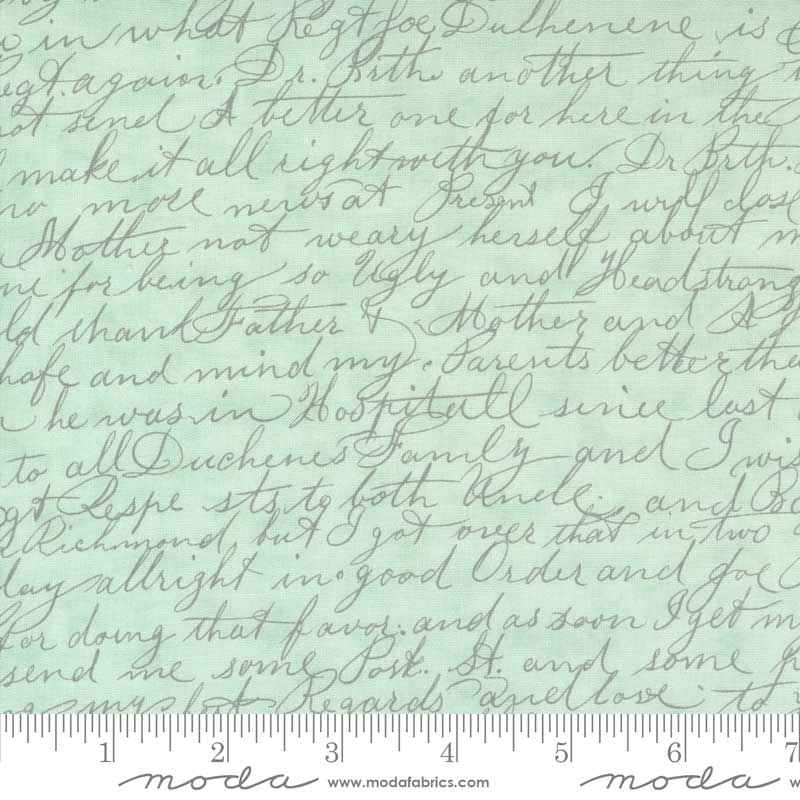 in what Regt Joe Duchenene is
Regt. again. Dr. Brth. another thing
not send A better one for here in the
make it all right with you. Dr Brth.
no more news at Present I will close
Mother not weary herself about
for being so Ugly and Headstrong
thank Father & Mother and A
and mind my Parents better
he was in Hospitall since last
to all Duchenes Family and I
Respe sts to both Uncle. and
Richmond, but I got over that in two
allright in good Order and Joe
for doing that favor. and as soon I get
send me some Post. St. and some
my Regards and love to
1 2 3 4 5 6 7
moda www.modafabrics.com moda